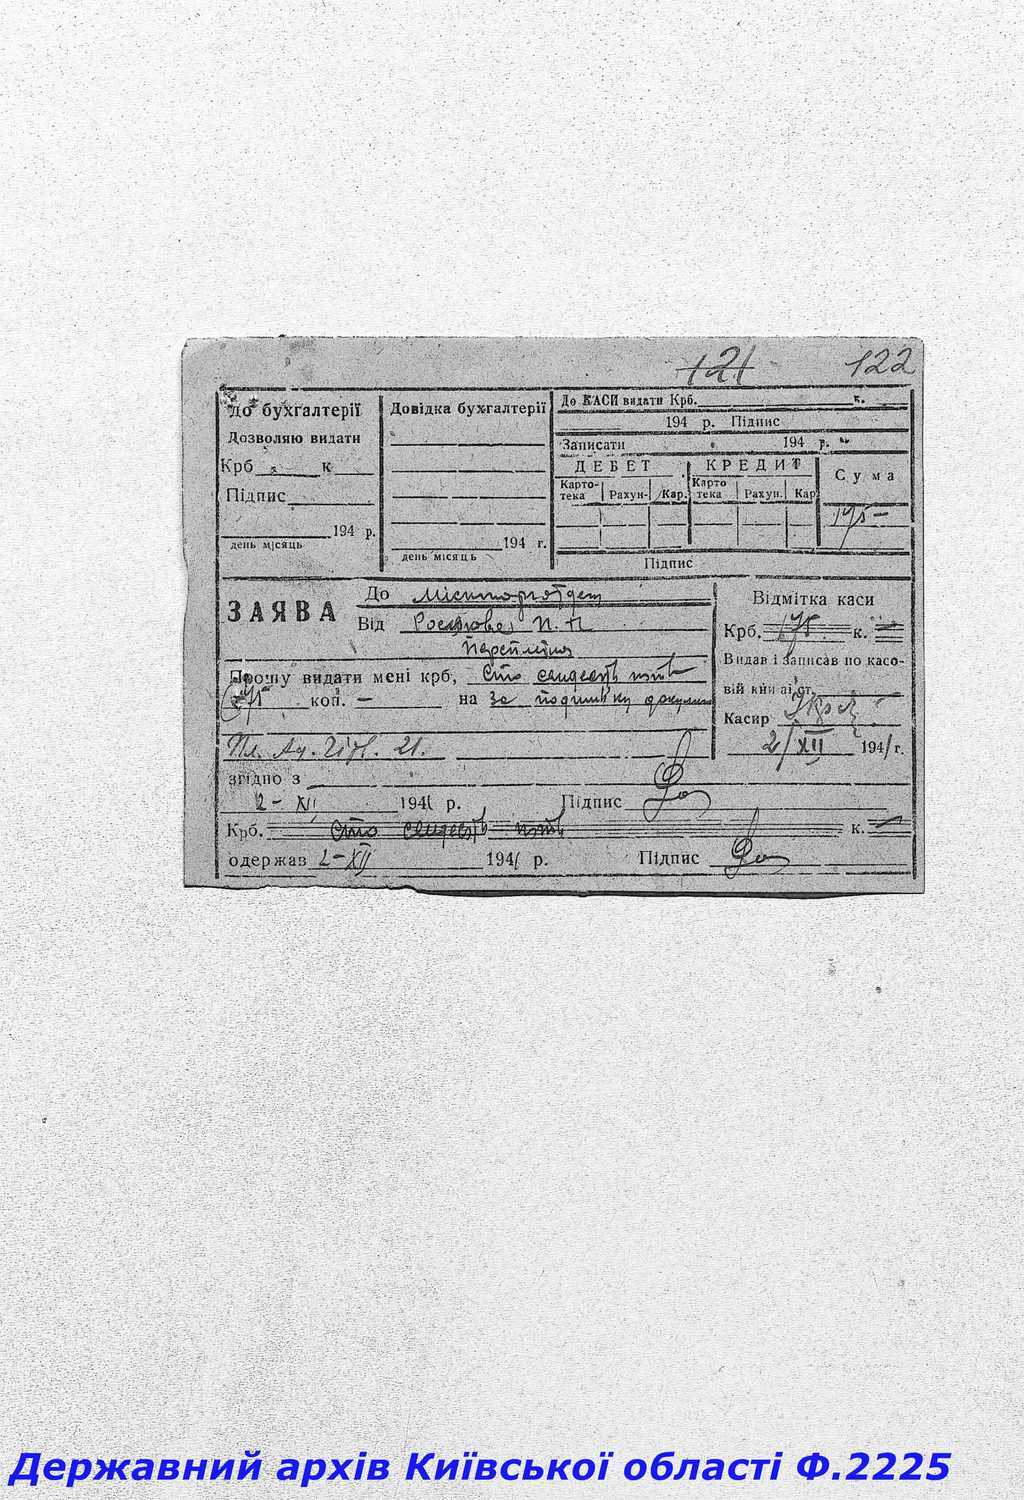 121 122
До бухгалтерії
Дозволяю видати
Крб. к
Підпис
194 р.
день місяць
Довідка бухгалтерії
194 г.
день місяць
До КАСИ видати Крб. к.
194 р. Підпис
Записати 194 р.
ДЕБЕТ КРЕДИТ Сума
Карто-тека Рахун- Кар. Карто тека Рахун. Кар
175 —
Підпис
ЗАЯВА
До
Від П. П.
Прошу видати мені крб, сто сімдесят пять
175 коп. — на за
21.
згідно з
2 - XII 1941 р. Підпис
Крб. сто сімдесят пять к. —
одержав 2-XII 1941 р. Підпис
Відмітка каси
Крб. 175 к. —
Видав і записав по касо-
вій книзі ст.
Касир
2/XII 1941 г.
Державний архів Київської області Ф.2225